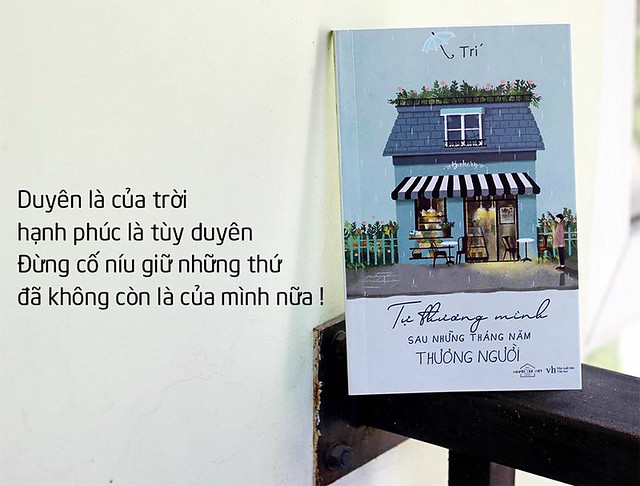 Duyên là của trời
hạnh phúc là tùy duyên
Đừng cố níu giữ những thứ
đã không còn là của mình nữa !
Trí
Bakery
Tự thương mình
SAU NHỮNG THÁNG NĂM
THƯƠNG NGƯỜI
vh